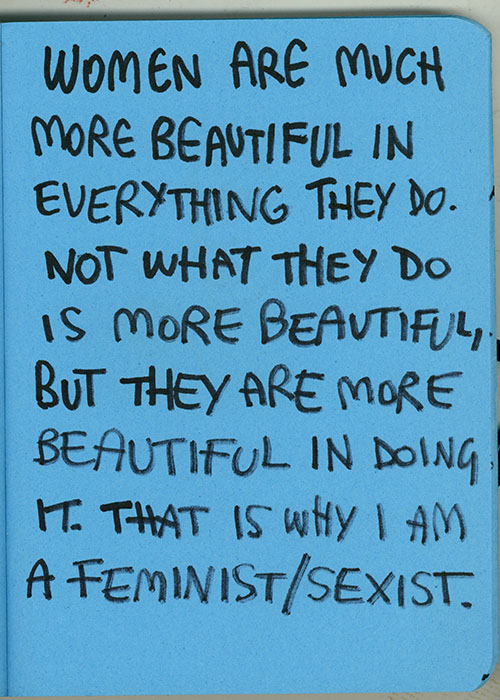 WOMEN ARE MUCH
MORE BEAUTIFUL IN
EVERYTHING THEY DO.
NOT WHAT THEY DO
IS MORE BEAUTIFUL,
BUT THEY ARE MORE
BEAUTIFUL IN DOING
IT. THAT IS WHY I AM
A FEMINIST/SEXIST.